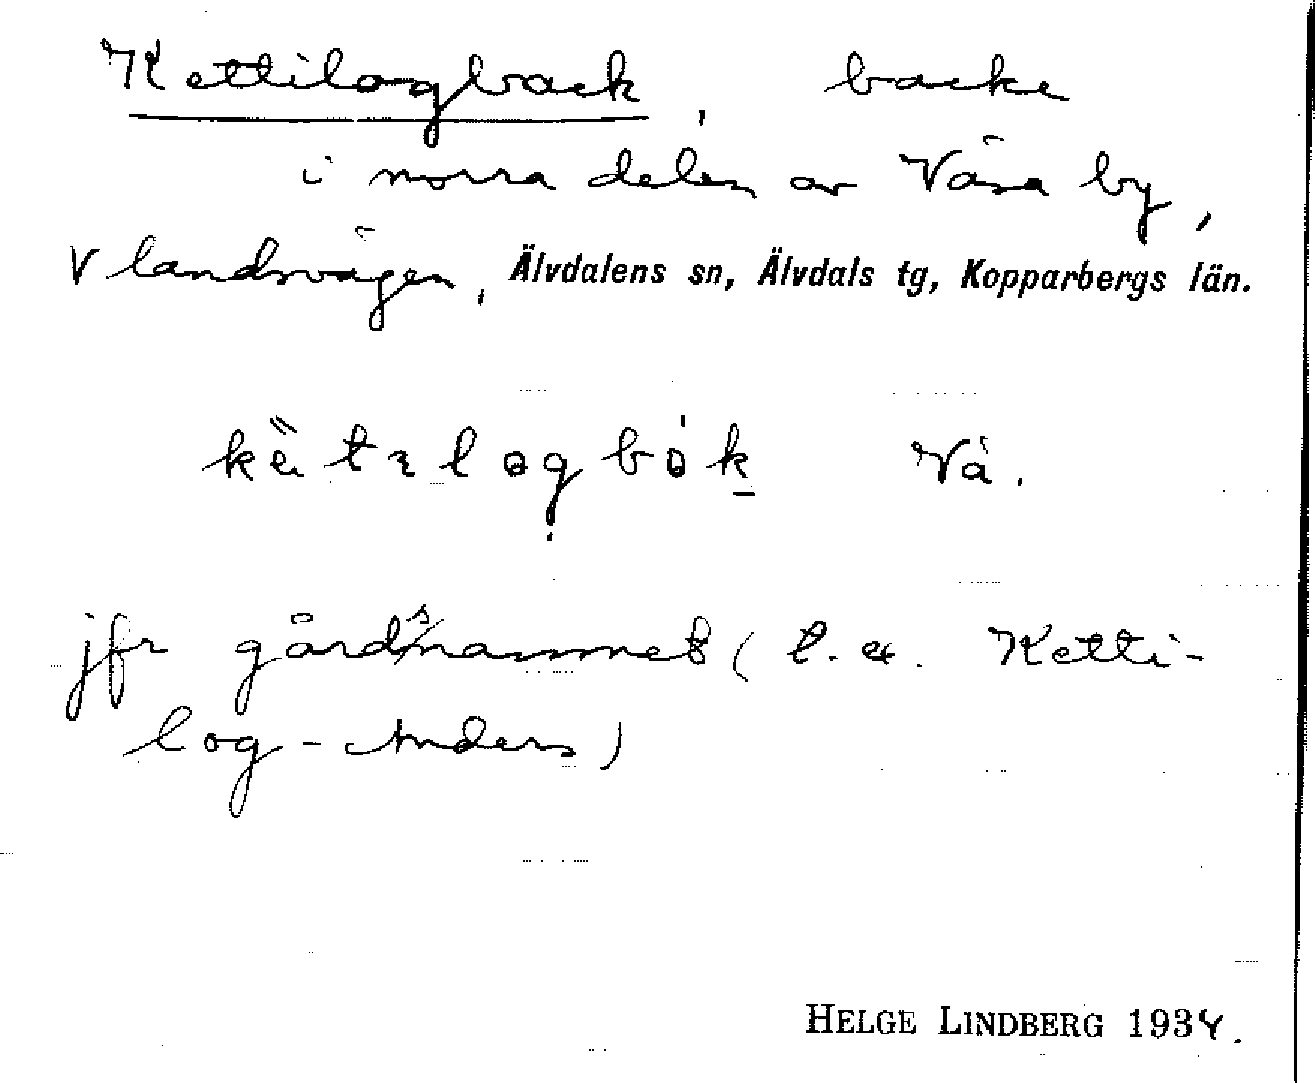 Kettilogback, backe
i norra delen av Våsa by,
V landsvägen, Älvdalens sn, Älvdals tg, Kopparbergs län.
Vå.
jfr gårdsnamnet (t.ex. Ketti-
log-Anders)
HELGE LINDBERG 1934.